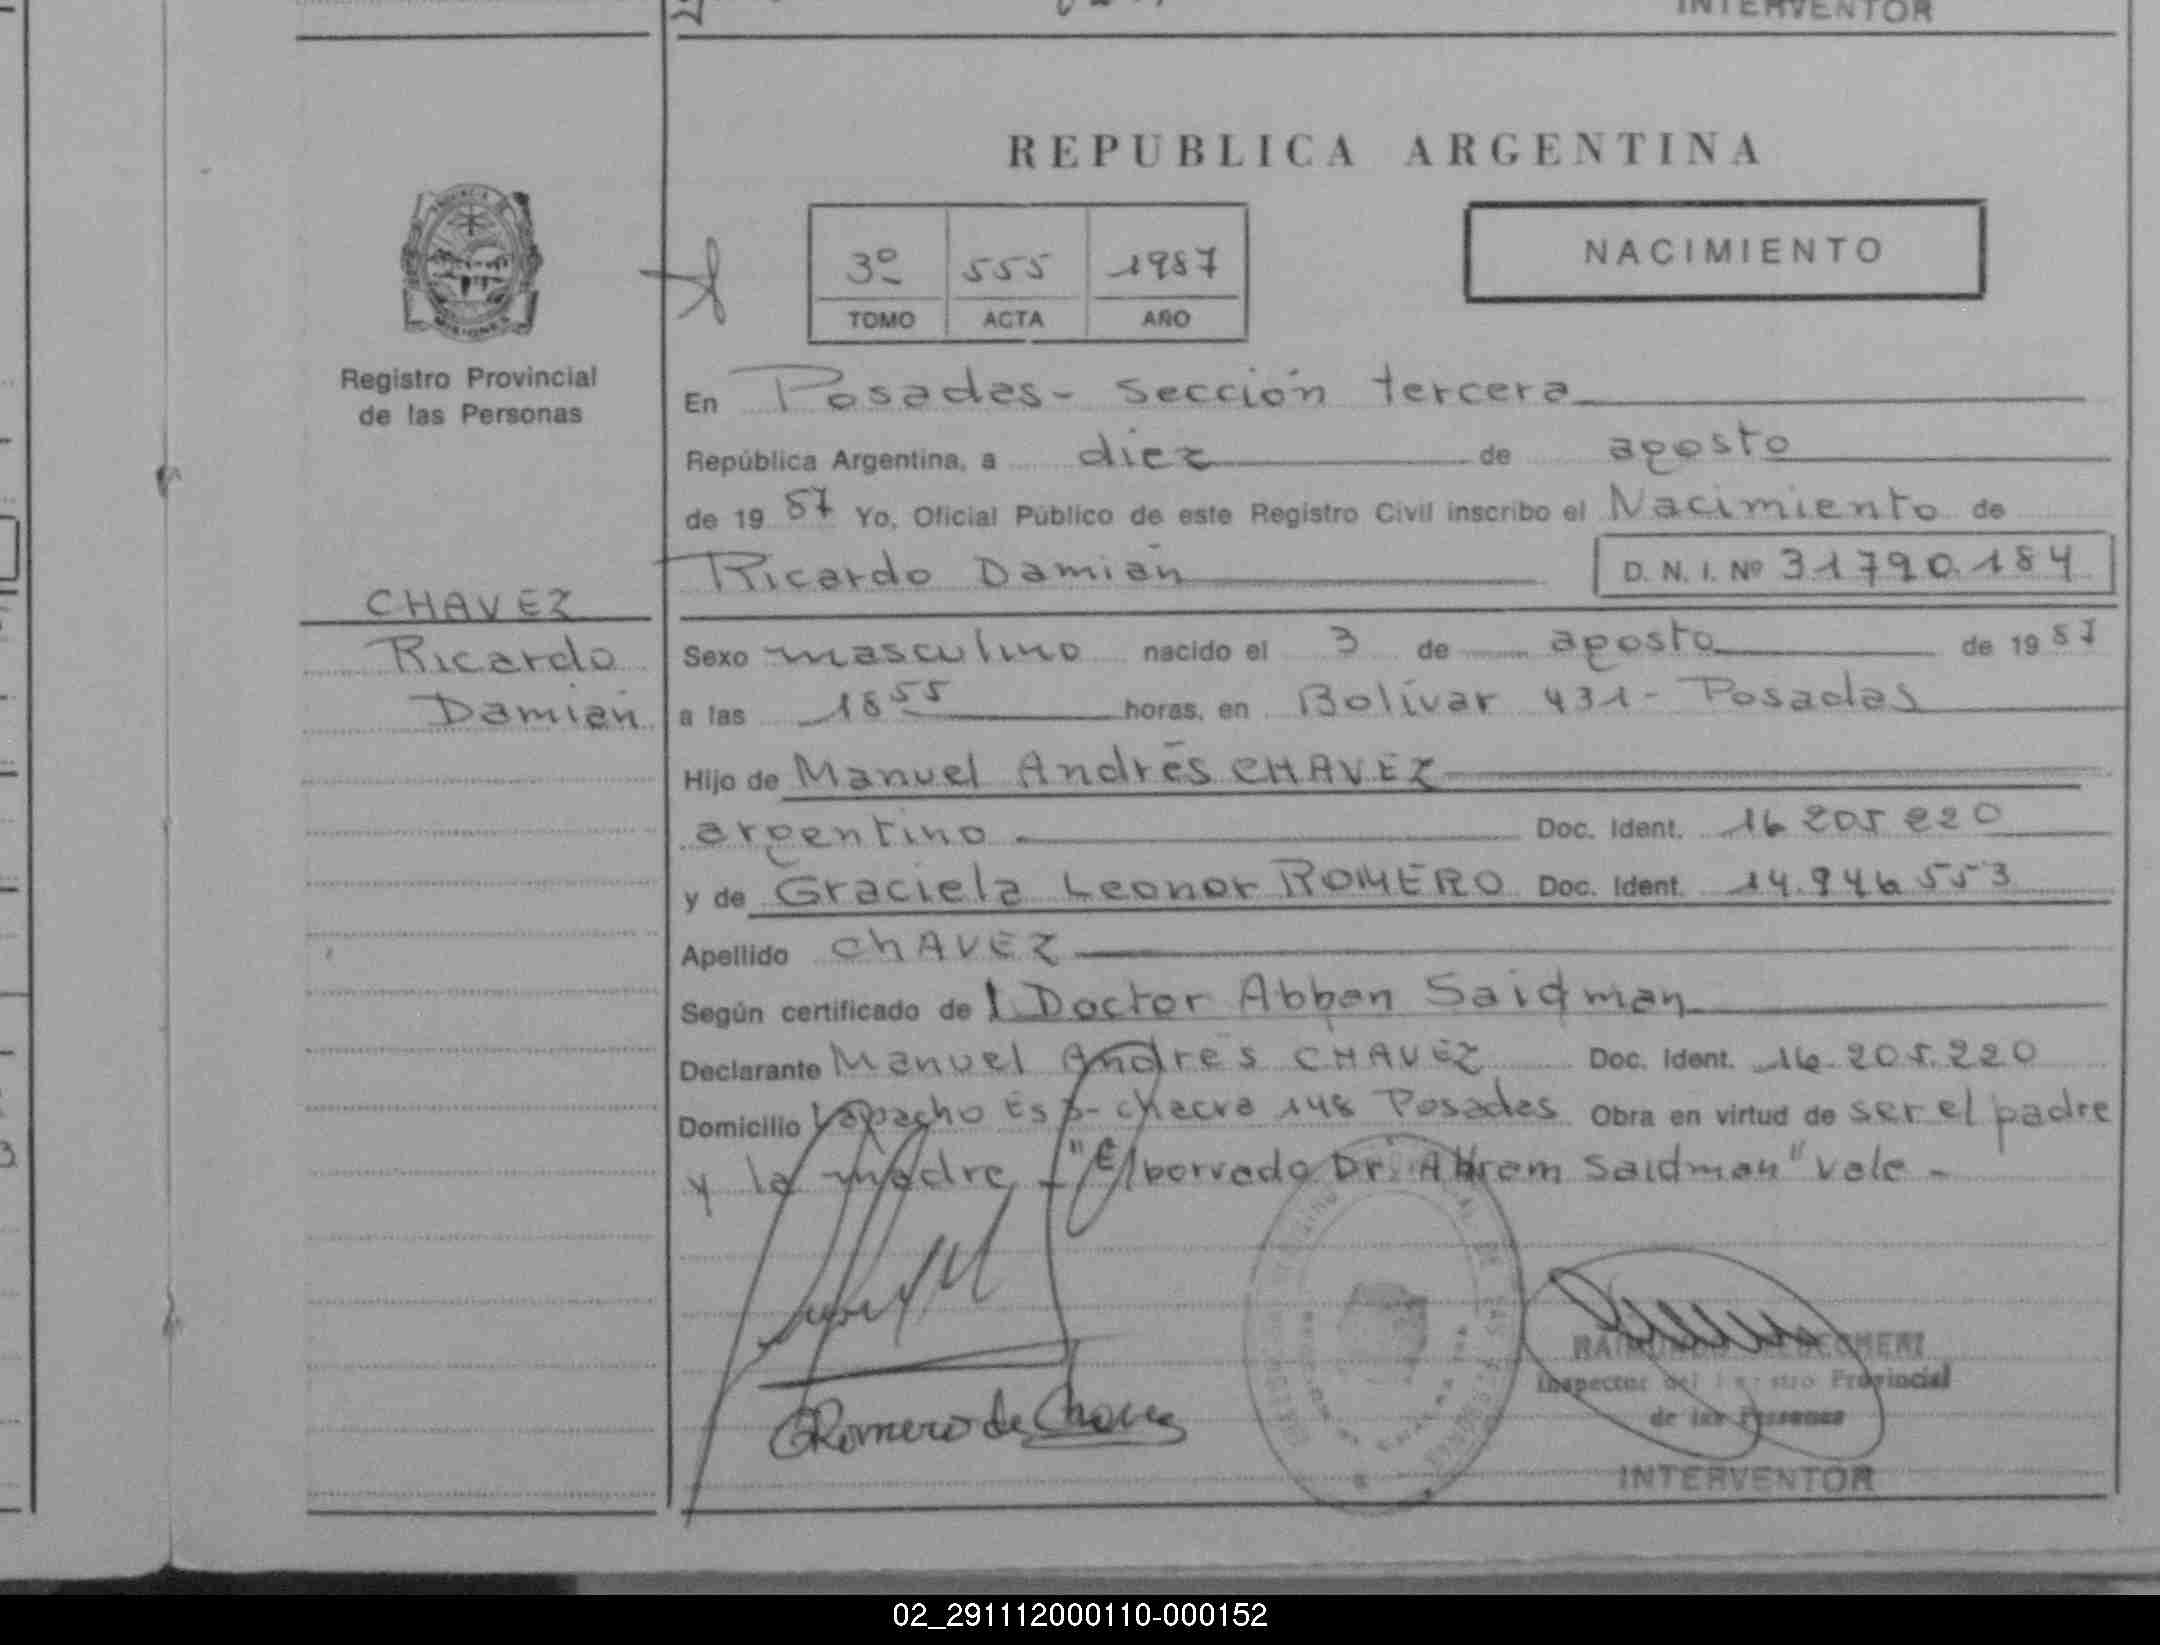 INTERVENTOR
REPUBLICA ARGENTINA
3º 555 1987
TOMO ACTA AÑO
NACIMIENTO
MISIONES
Registro Provincial
de las Personas
CHAVEZ
Ricardo
Damián
En Posadas - Sección tercera
República Argentina, a diez de agosto
de 19 87 Yo, Oficial Público de este Registro Civil inscribo el Nacimiento de
Ricardo Damián D. N. I. Nº 31790.184
Sexo masculino nacido el 3 de agosto de 19 87
a las 18 55 horas, en Bolívar 431 - Posadas
Hijo de Manuel Andrés CHAVEZ
argentino Doc. Ident. 16 205 220
y de Graciela Leonor ROMERO Doc. Ident. 14.946 553
Apellido ChAVEZ
Según certificado de l Doctor Saidman
Declarante Manuel Andrés CHAVEZ Doc. Ident. 16.205.220
Domicilio Lapacho Esp - chacra 148 Posadas Obra en virtud de ser el padre
y la madre - "El borrado Dr. Abrem Saidman" vale -
GRomero de Chavez
RAIMUNDO
Inspector del Registro Provincial
de las Personas
INTERVENTOR
02_291112000110-000152